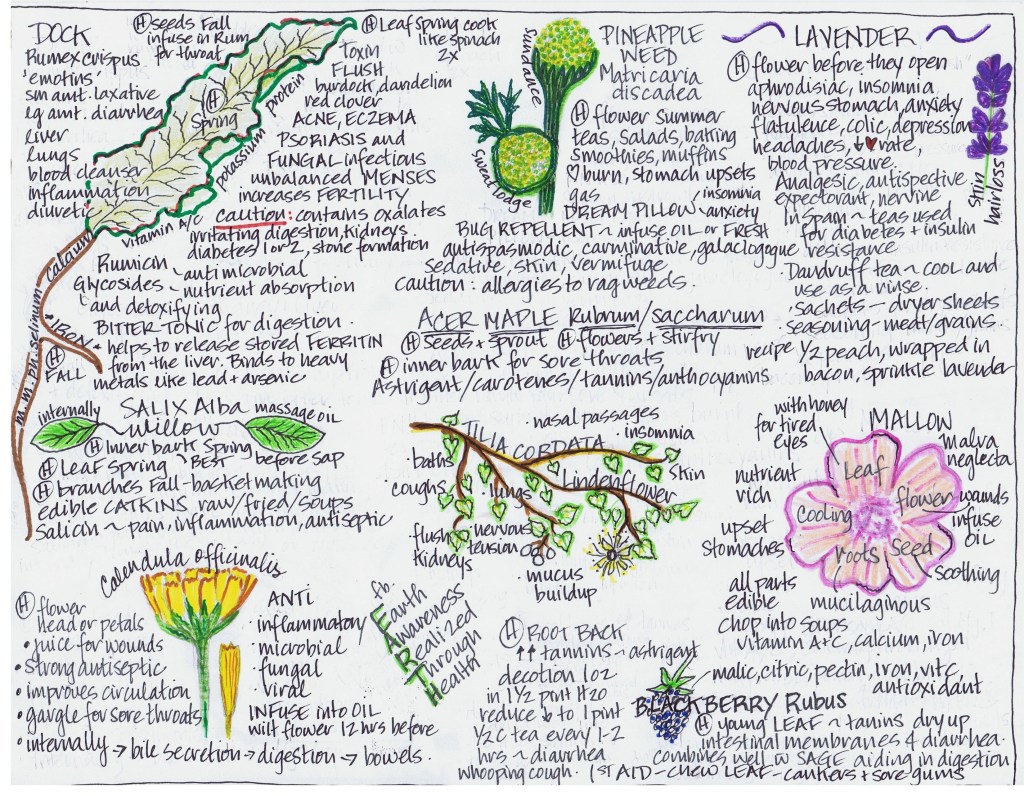 DOCK
Rumex crispus
'emotins'
sm amt. laxative
lg amt. diarrhea
liver
lungs
blood cleanser
inflammation
diuretic
Ⓗ seeds Fall
infuse in Rum
for throat
Ⓗ
Spring
protein
potassium
vitamin A/C
calcium
m.m. ph. selinum
IRON
Ⓗ
FALL
Ⓗ Leaf Spring cook
like spinach
2x
Toxin
FLUSH
burdock, dandelion
red clover
ACNE, ECZEMA
PSORIASIS and
FUNGAL infections
unbalanced MENSES
increases FERTILITY
caution: contains oxalates
irritating digestion, kidneys.
diabetes 1 or 2, stone formation
Rumicin ~ antimicrobial
Glycosides ~ nutrient absorption
and detoxifying
BITTER TONIC for digestion.
* helps to release stored FERRITIN
from the liver. Binds to heavy
metals like lead + arsenic
Sundance
Sweat Lodge
PINEAPPLE
WEED
Matricaria
discadea
Ⓗ flower Summer
teas, salads, baking
smoothies, muffins
♡ burn, stomach upsets
gas
DREAM PILLOW ~ insomnia
anxiety
BUG REPELLENT ~ infuse OIL or FRESH
antispasmodic, carminative, galaclogogue
sedative, skin, vermifuge
caution: allergies to ragweeds.
~ LAVENDER ~
Ⓗ flower before they open
aphrodisiac, insomnia
nervous stomach, anxiety
flatulence, colic, depression
headaches, ↓♥rate,
blood pressure.
Analgesic, antispective
expectorant, nervine
In Spain ~ teas used
for diabetes + insulin
resistance
· Dandruff tea ~ cool and
use as a rinse.
· sachets ~ dryer sheets
· seasoning - meat/grains
recipe ½ peach, wrapped in
bacon, sprinkle lavender
skin
hairloss
ACER MAPLE Rubrum/Saccharum
Ⓗ seeds + sprout Ⓗ flowers + stirfry
Ⓗ inner bark for sore throats
Astrigent/carotenes/tannins/anthocyanins
internally
SALIX Alba
Willow
massage oil
Ⓗ Inner bark Spring
BEST before sap
Ⓗ Leaf Spring
Ⓗ branches Fall - basket making
edible CATKINS raw/fried/soups
Salicin ~ pain, inflammation, antiseptic
TILIA CORDATA
Lindenflower
· nasal passages
· insomnia
skin
· baths
· coughs
· lungs
flush
kidneys
nervous
tension
· mucus
buildup
MALLOW
malva
neglecta
with honey
for tired
eyes
nutrient
rich
upset
stomaches
Leaf
flower
Cooling
roots
Seed
wounds
infuse
OIL
soothing
mucilaginous
all parts
edible
chop into soups
vitamin A+C, calcium, iron
Calendula officinalis
Ⓗ flower
head or petals
• juice for wounds
• strong antiseptic
• improves circulation
• gargle for sore throats
• internally → bile secretion → digestion → bowels.
ANTI
· inflammatory
· microbial
· fungal
· viral
INFUSE into OIL
wilt flower 12 hrs before
fb.
Earth
Awareness
Realized
Through
Health
Ⓗ ROOT BACK
↑↑ tannins ~ astrigent
decotion 1oz
in 1½ pint H20
reduce ↓ to 1 pint
½ c tea every 1-2
hrs ~ diarrhea
whooping cough.
BLACKBERRY Rubus
malic, citric, pectin, iron, vit c,
antioxidant
Ⓗ young LEAF ~ tanins dry up
intestinal membranes & diarrhea.
combines well w SAGE aiding in digestion
1st AID - chew LEAF - cankers + sore gums